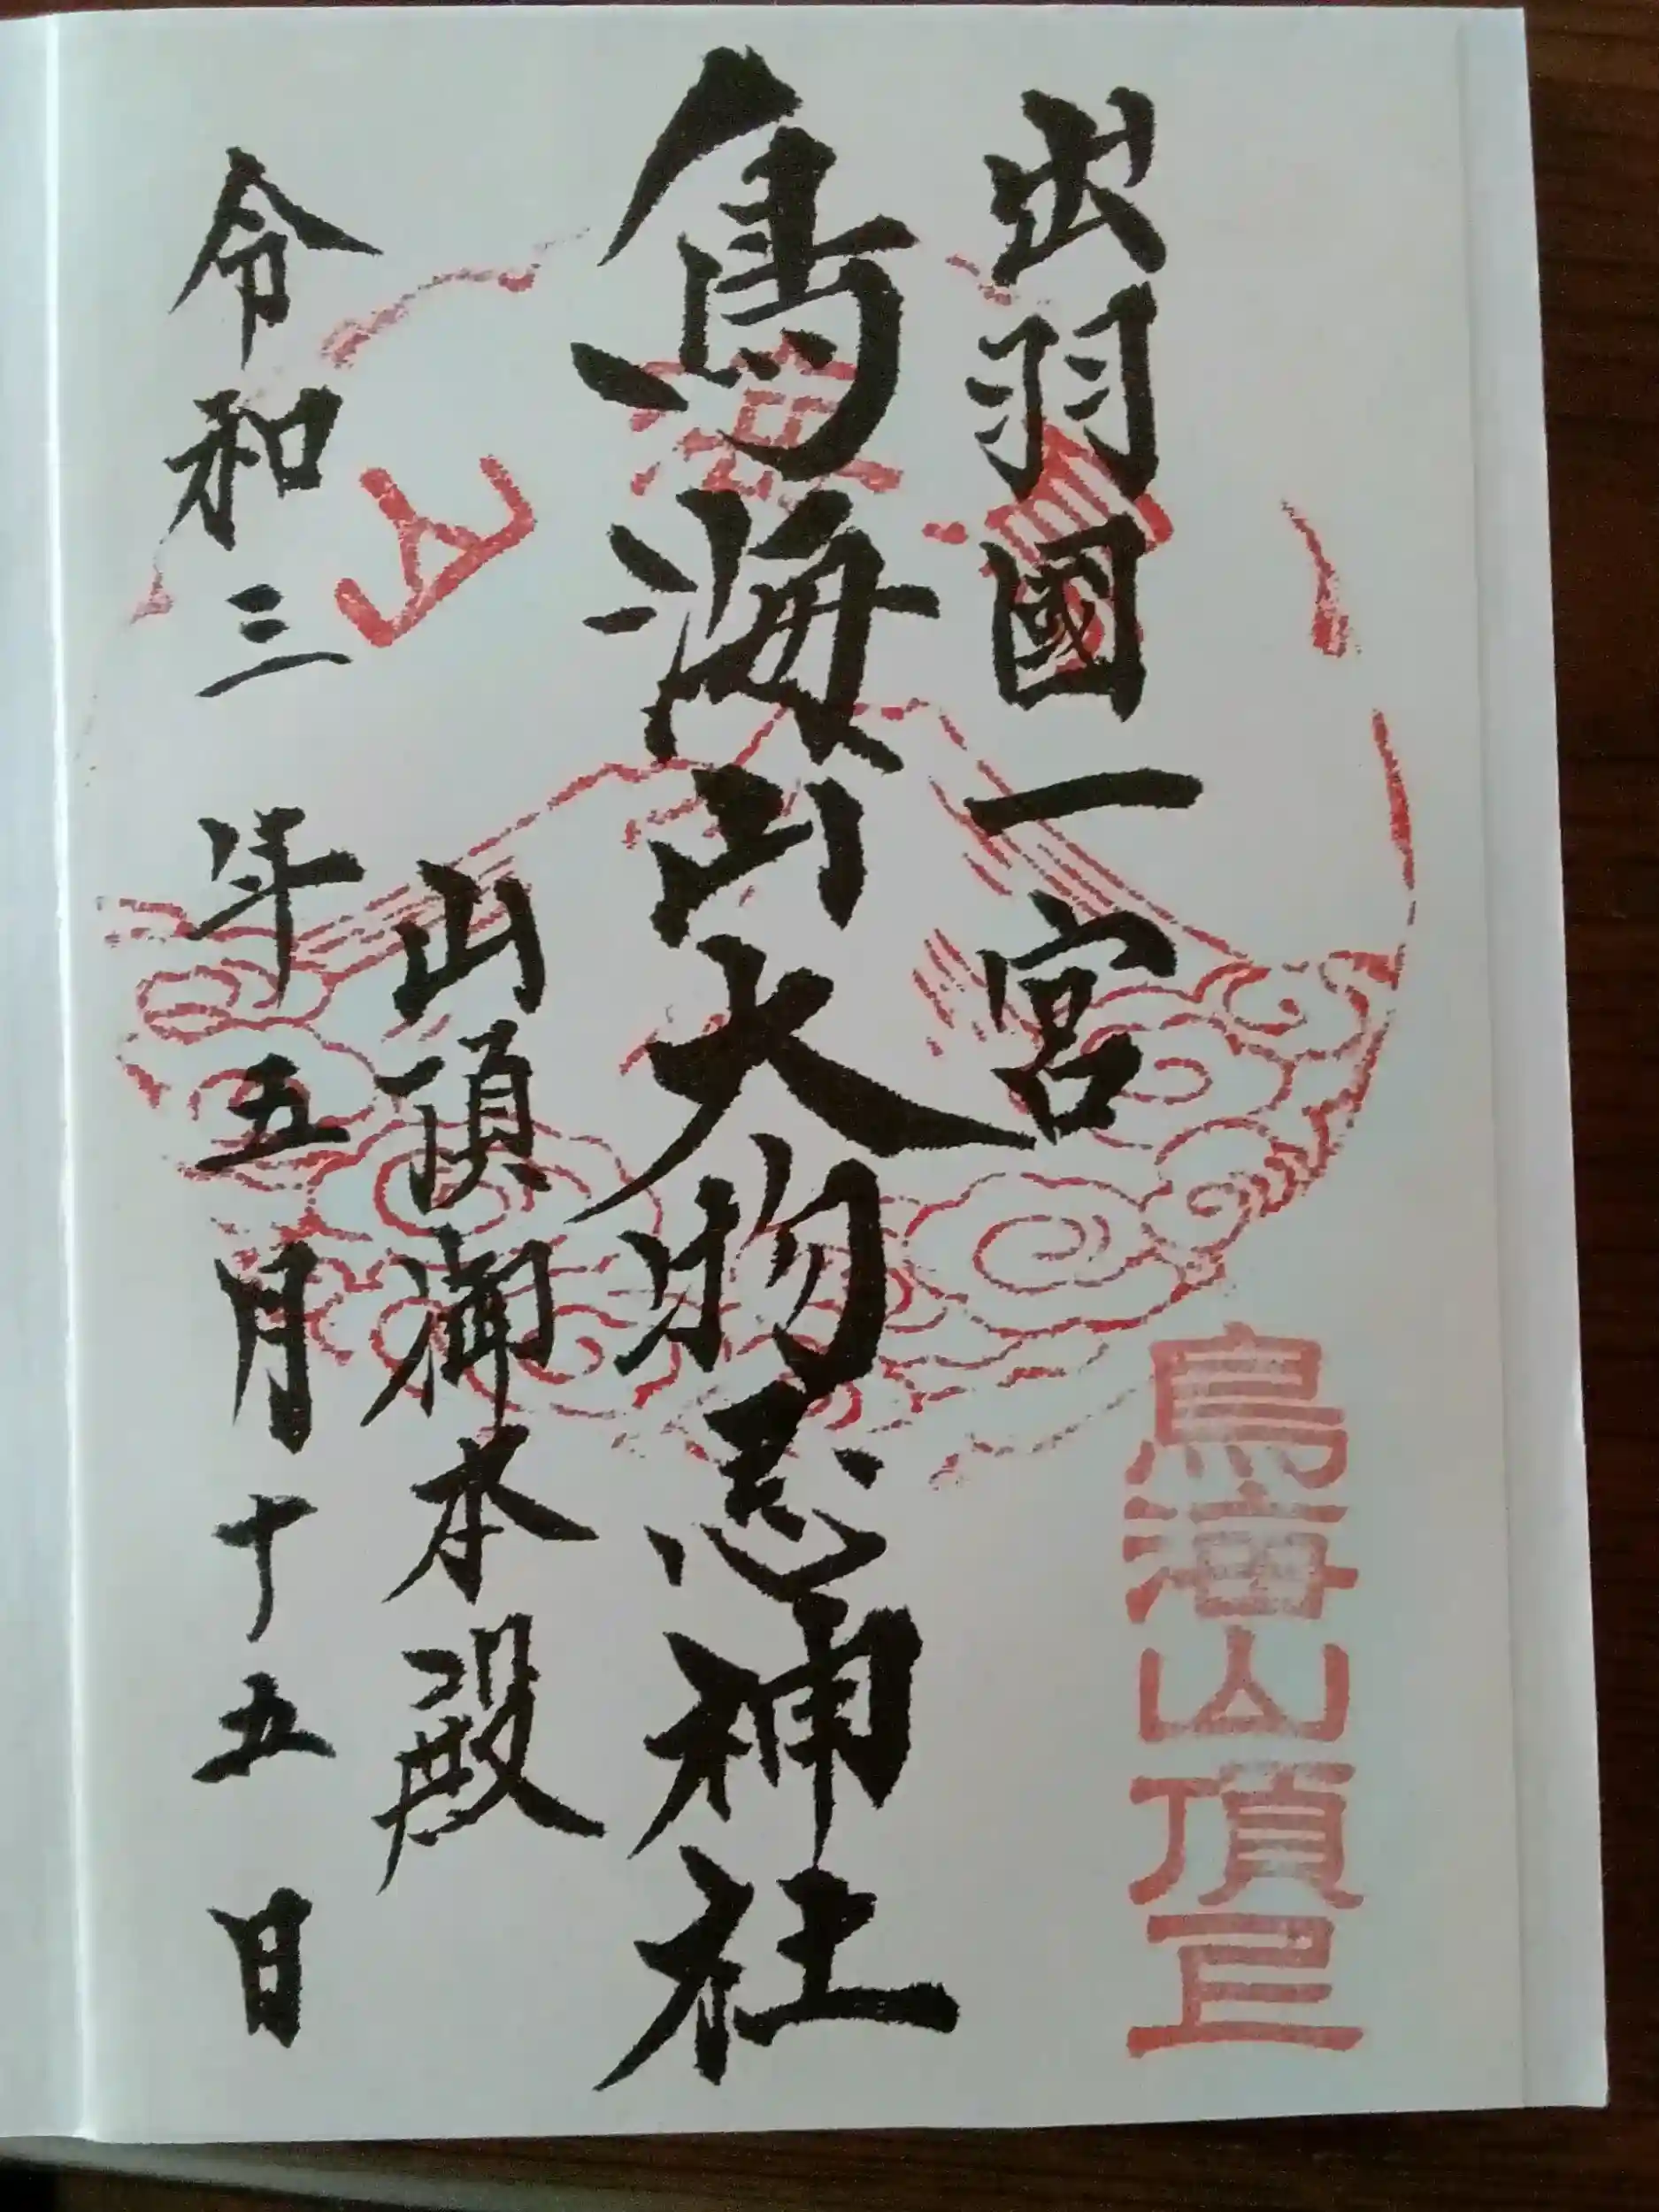 出羽國一宮
鳥海山大物忌神社
山頂御本殿
令和三年五月十五日
鳥海山
鳥海山頂上